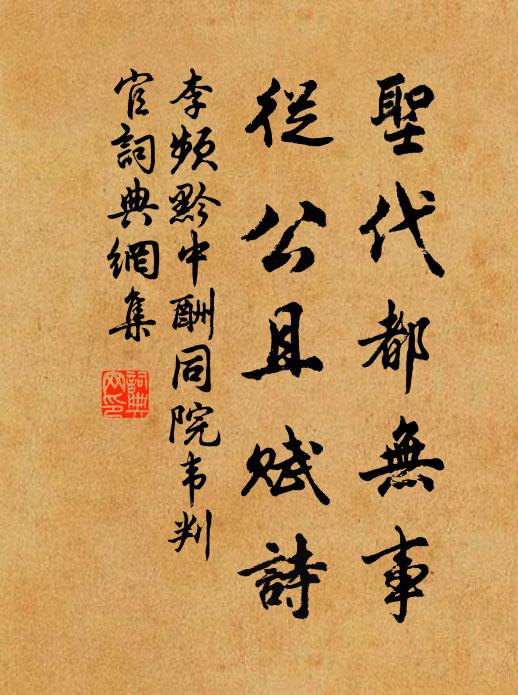 聖代都無事
從公且賦詩
李頻黔中酬同院韦判
官詞典網集
詞典網印